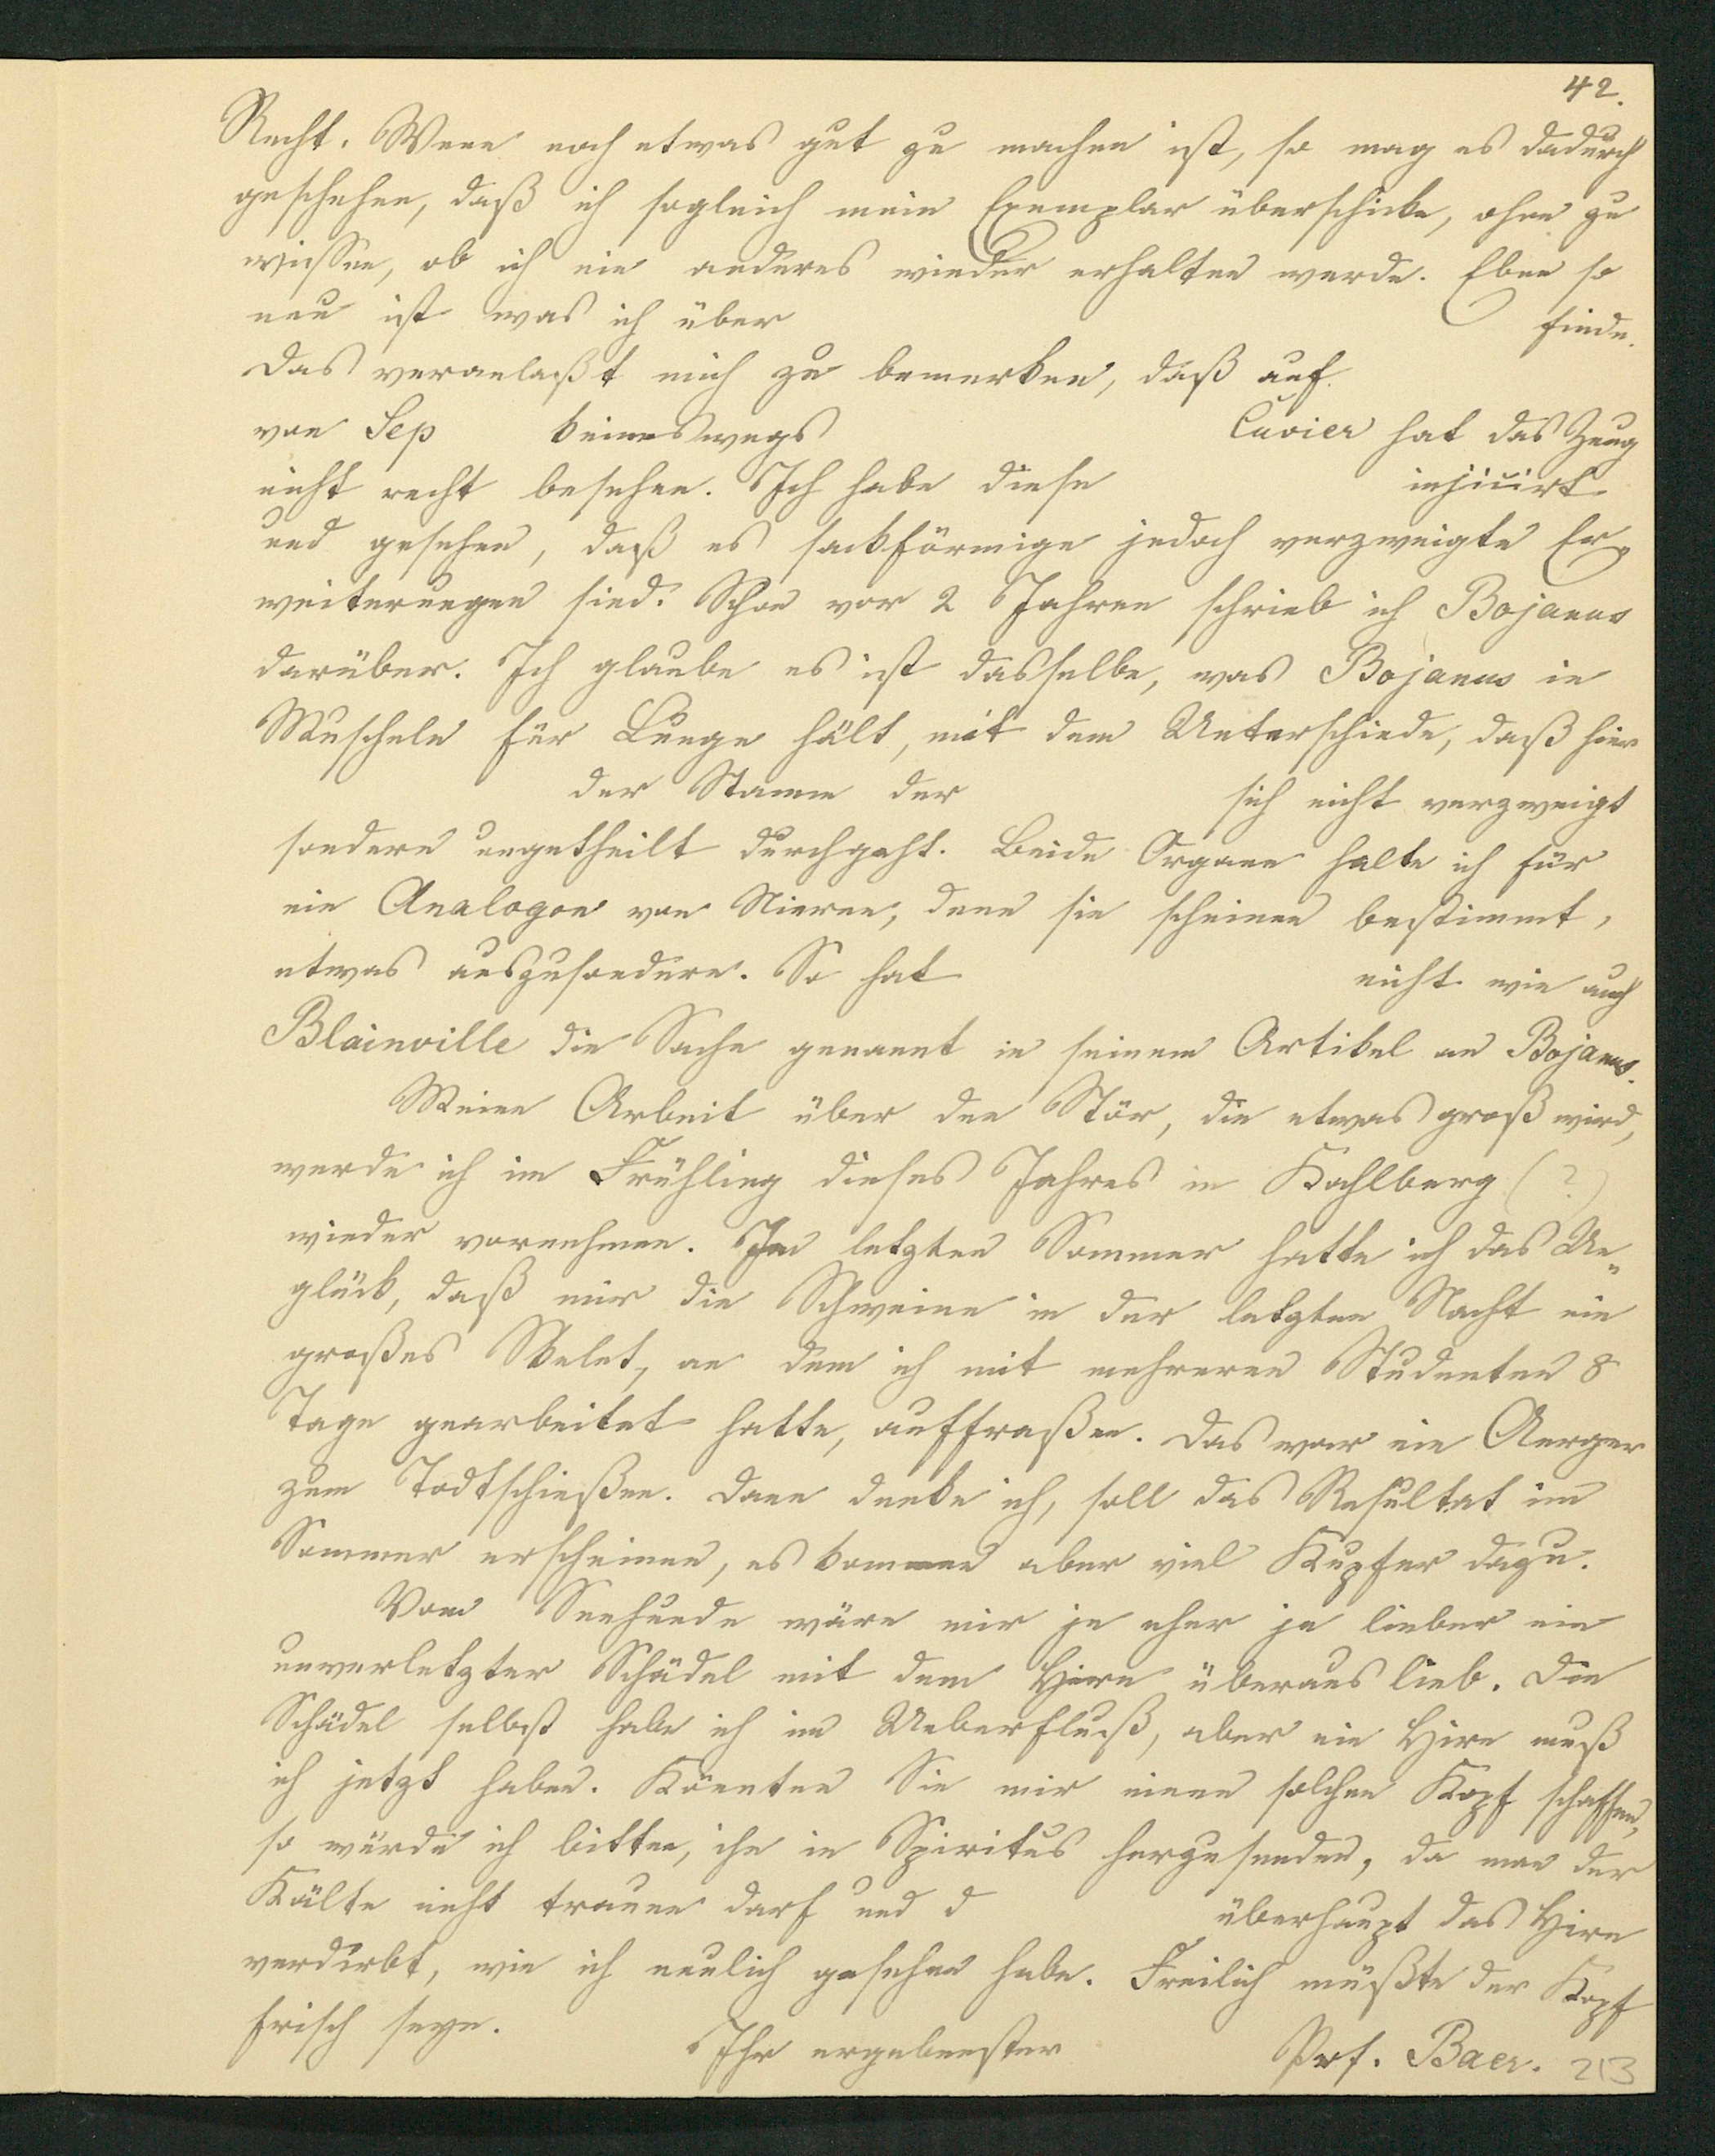 42.
Recht. Wenn noch etwas gut zu machen ist, so mag es dadurch
geschehen, daß ich sogleich mein Exemplar überschicke, ohne zu
wissen, ob ich ein anderes wieder erhalten werde. Eben so
neu ist was ich über finde.
Das veranlaßt mich zu bemerken, daß auf
von Sep keineswegs Cuvier hat das Zeug
nicht recht besehen. Ich habe diese injicirt
und gesehen, daß es sackförmige jedoch verzweigte Er-
weiterungen sind. Schon vor 2 Jahren schrieb ich Bojanus
darüber. Ich glaube es ist dasselbe, was Bojanus in
Muscheln für Lunge hält, mit dem Unterschiede, daß hier
der Stamm der sich nicht verzweigt
sondern ungetheilt durchgeht. Beide Organe halte ich für
ein Analogon von Nieren, denn sie scheinen bestimmt,
etwas auszusondern. So hat nicht wie auch
Blainville die Sache genannt in seinem Artikel an Bojanus.
Meine Arbeit über den Stör, die etwas groß wird,
werde ich im Frühling dieses Jahres in Kahlberg (?)
wieder vornehmen. Im letzten Sommer hatte ich das Un-
glück, daß mir die Schweine in der letzten Nacht ein
großes Skelet, an dem ich mit mehreren Studenten 8
Tage gearbeitet hatte, auffraßen. Das war ein Aerger
zum Todtschießen. Dann denke ich, soll das Resultat im
Sommer erscheinen, es kommen aber viel Kupfer dazu.
Vom Seehunde wäre mir je eher je lieber ein
unverletzter Schädel mit dem Hirn überaus lieb. Die
Schädel selbst habe ich im Ueberfluß, aber ein Hirn muß
ich jetzt haben. Könnten Sie mir einen solchen Kopf schaffen,
so würde ich bitten, ihn in Spiritus herzusenden, da man der
Kälte nicht trauen darf und d überhaupt das Hirn
verdirbt, wie ich neulich gesehen habe. Freilich müßte der Kopf
frisch seyn.
Ihr ergebenster Prof. Baer. 213